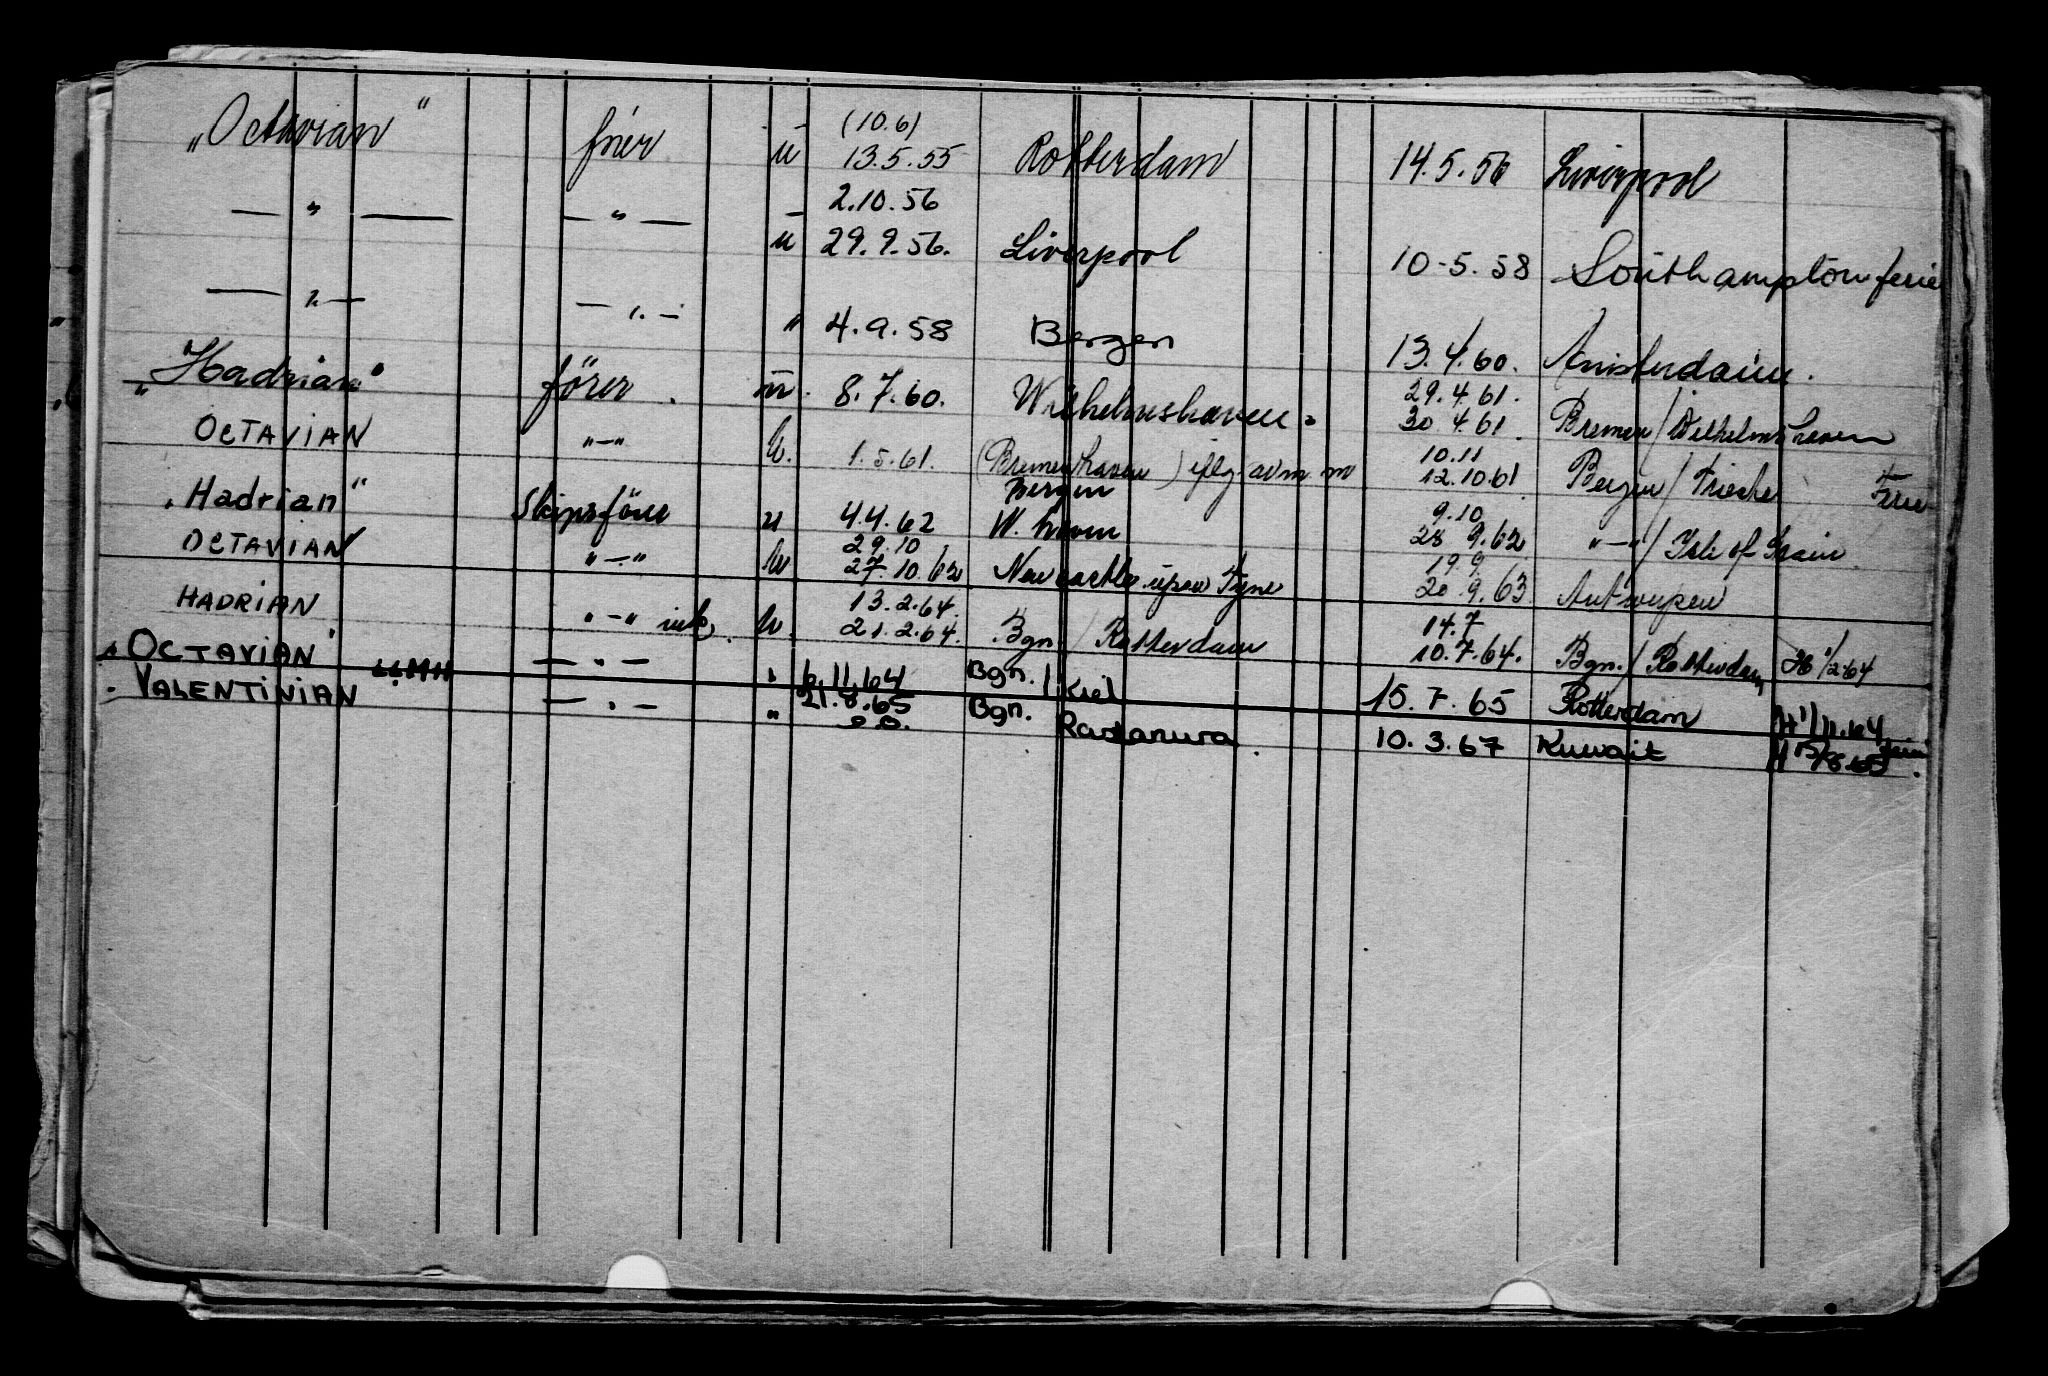 (10.6)
„Octavian“ fører u 13.5.55 Rotterdam 14.5.56 Liverpool
2.10.56
— " — — " — u 29.9.56. Liverpool 10-5.58 Southampton ferie
— " — — " — " 4.9.58 Bergen 13.4.60. Amsterdam.
29.4.61.
„Hadrian“ förer. m. 8.7.60. Wilhelmshaven. 30.4.61. Bremen/Wilhelmshaven
10.11
OCTAVIAN "—" u. 1.5.61. (Bremerhaven) iflg. av m m 12.10.61 Bergen/Trieste Ferie
Bergen
9.10
„Hadrian“ Skipsföre u 4.4.62 W. haven 28.9.62 "—"/Isle of Grain
29.10 19.9
OCTAVIAN "—" u 27.10.62 Newcastle upon Tyne 20.9.63. Antwerpen
13.2.64. 14.7
HADRIAN "—" u. 21.2.64. Bgn/Rotterdam 10.7.64. Bgn./Rotterdam H 1/2-64
„OCTAVIAN“ LLMH — " — " 6.11.64 Bgn./Kiel 15.7.65 Rotterdam H 1/11.64
21.8.65
„VALENTINIAN — " — " Bgn. 10.3.67 Kuwait H 15/8.65